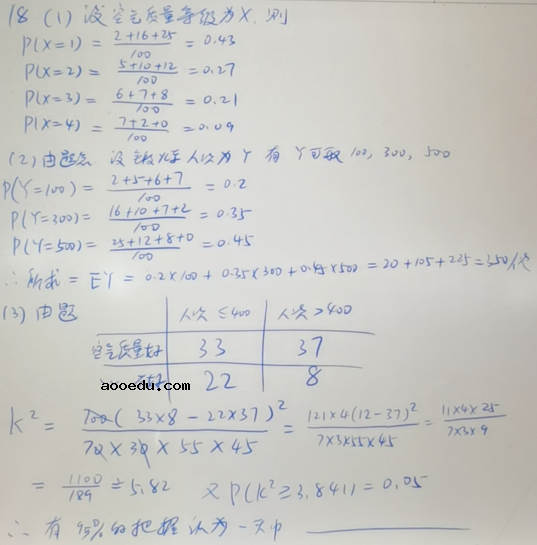 18 (1) 设空气质量等级为X, 则
P(X=1) = (2+16+25)/100 = 0.43
P(X=2) = (5+10+12)/100 = 0.27
P(X=3) = (6+7+8)/100 = 0.21
P(X=4) = (7+2+0)/100 = 0.09
(2) 由题意 设锻炼人次为Y 有 Y可取 100, 300, 500
P(Y=100) = (2+5+6+7)/100 = 0.2
P(Y=300) = (16+10+7+2)/100 = 0.35
P(Y=500) = (25+12+8+0)/100 = 0.45
∴ 所求 = EY = 0.2×100 + 0.35×300 + 0.45×500 = 20+105+225 = 350
(3) 由题
人次 ≤400 人次 >400
空气质量好 33 37
不好 22 8
aooedu.com
K² = 100(33×8-22×37)²/(70×30×55×45) = 121×4(12-37)²/(7×3×55×45) = 11×4×25/(7×3×9)
= 1100/189 ≐ 5.82 又 P(K²≥3.841) = 0.05
∴ 有 95% 的把握认为一天中